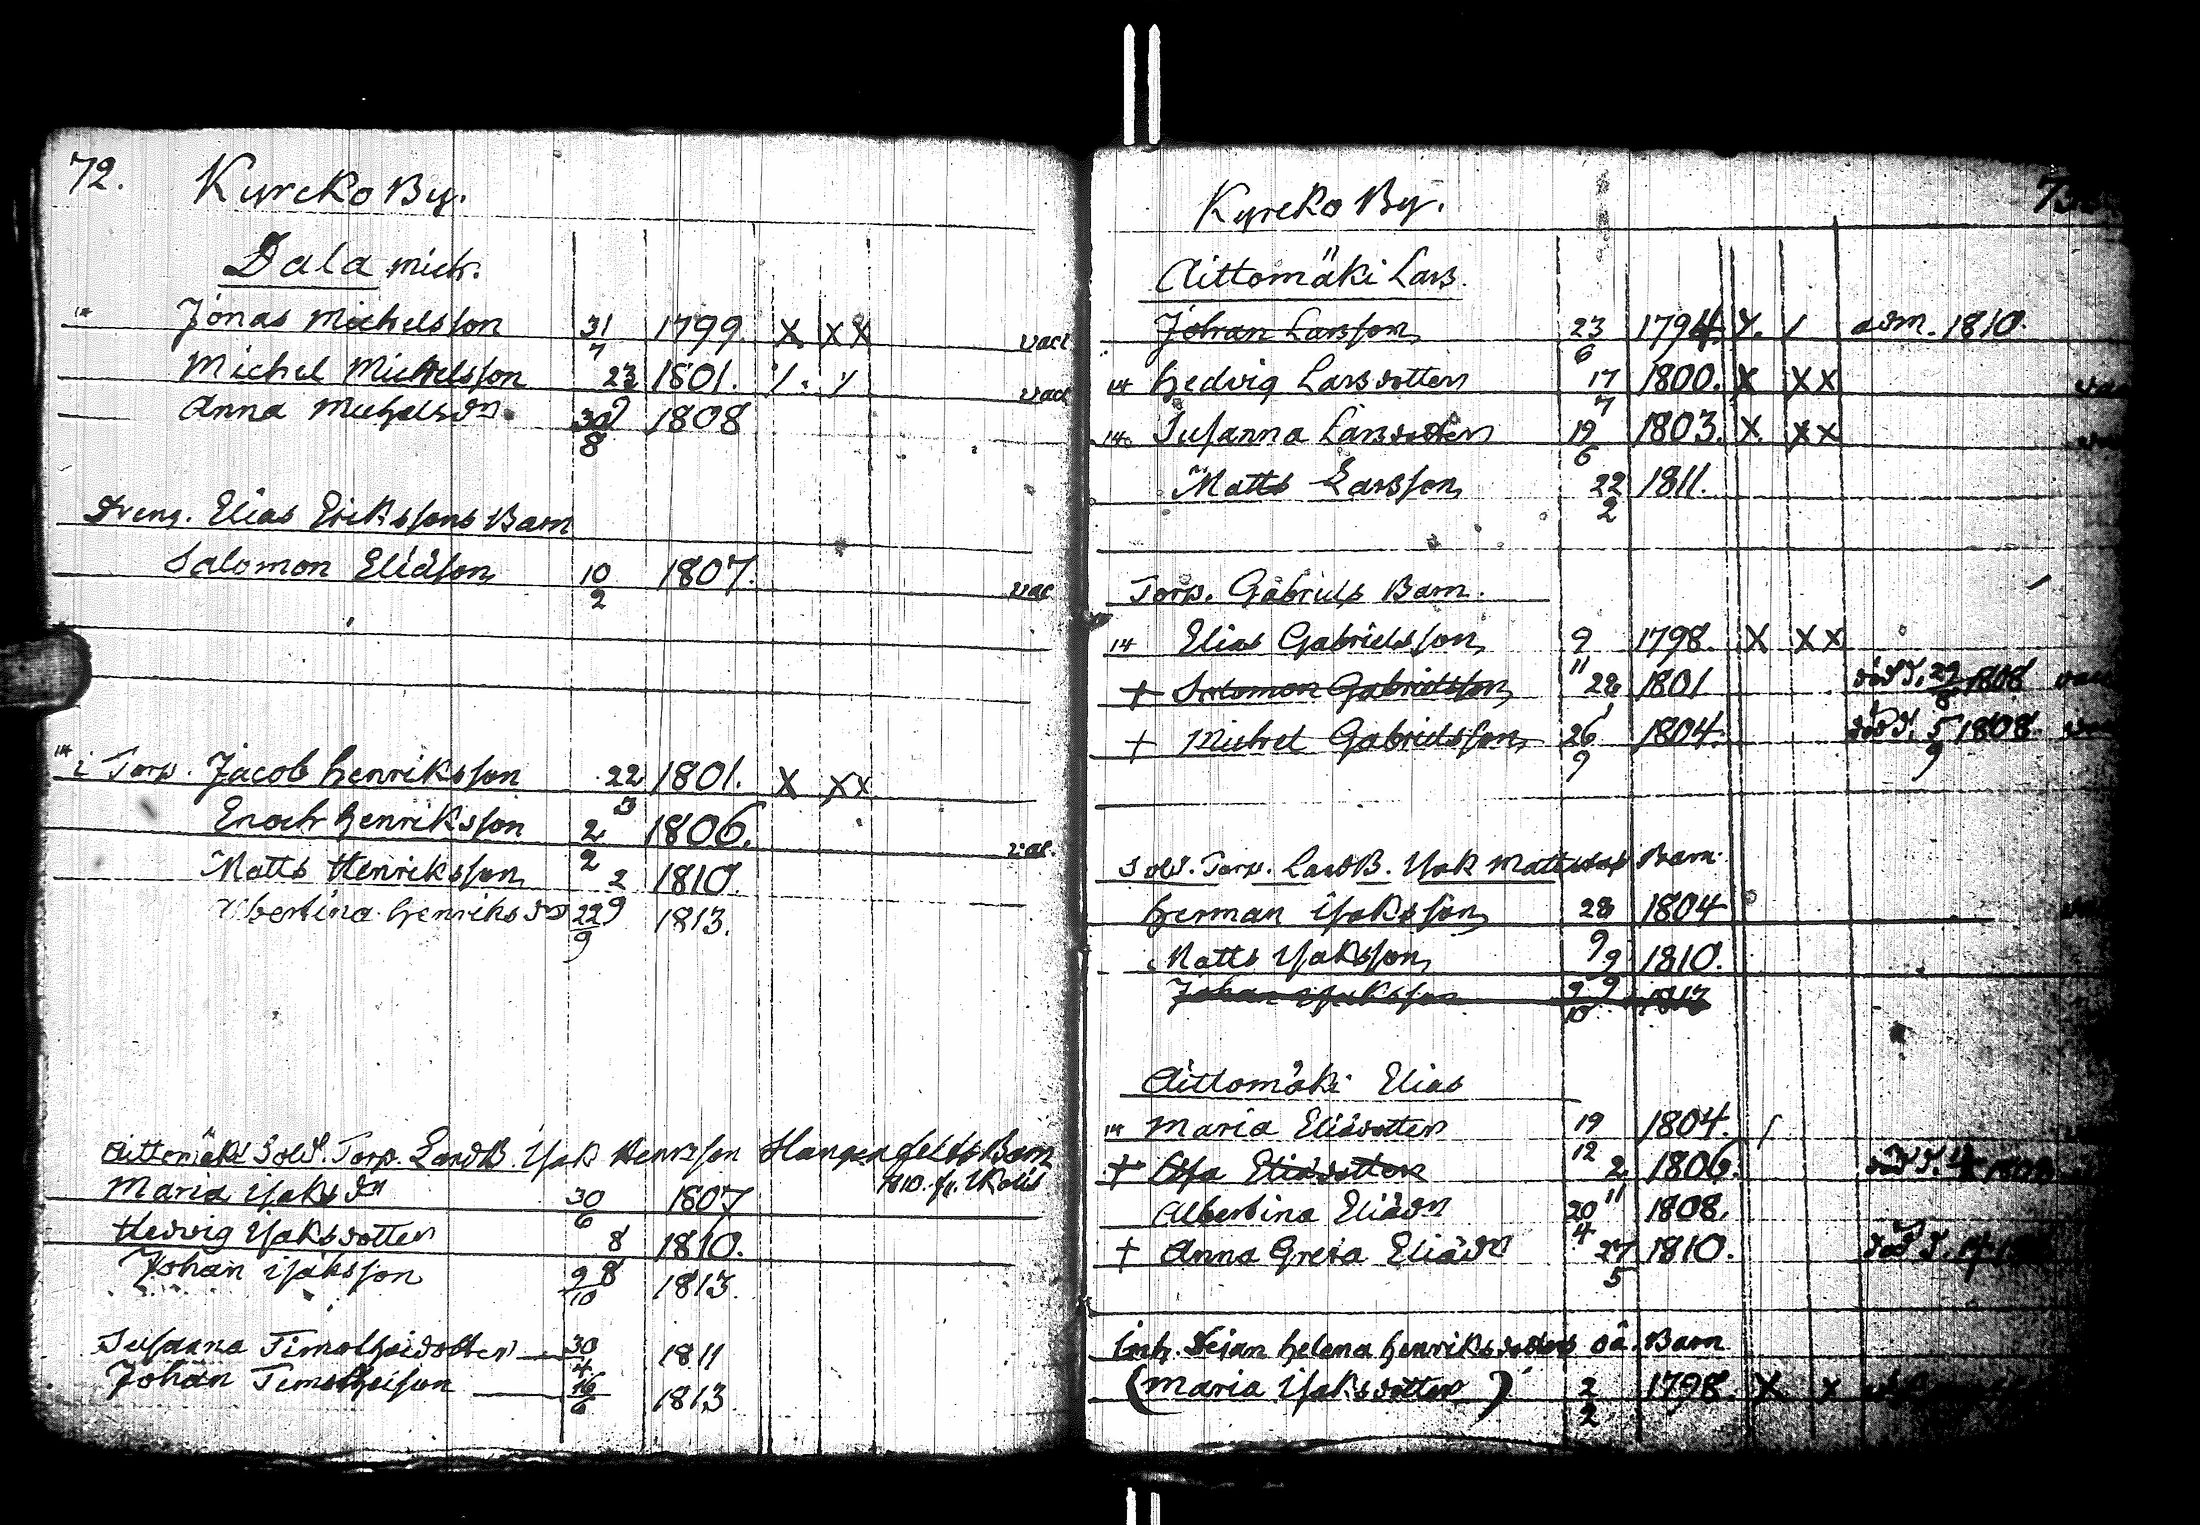 72. Kyrcko By.
Dala Mich.
14 Jonas Michelsson 31/7 1799. X XX vacc
Michel Michelsson 23/9 1801. vacc
Anna Michelsdr 30/8 1808
Dreng. Elias Erikssons Barn
Salomon Eliäson 10/2 1807. vac
14 i Torp. Jacob Henriksson 22/3 1801. X XX
Enoch Henriksson 2/2 1806. vac.
Matts Henriksson 2/9 1810.
Albertina Henriksdr 22/9 1813.
Aittomäki Sold. Torp. Landb. Isak Henrsson Barn
1810. fr.
Maria Isaksdr 30/6 1807
Hedvig Isaksdotter 8/8 1810.
Johan Isaksson 9/10 1813.
Susanna Timotheidotter 30/4 1811
Johan Timotheison 16/6 1813
Kyrcko By.
Aittomäki Lars.
Johan Larsson 23/6 1794. adm. 1810.
14 Hedvig Larsdotter 17/7 1800. X XX
14 Susanna Larsdotter 19/6 1803. X XX
Matts Larsson 22/2 1811.
Torp. Gabriels Barn.
14 Elias Gabrielsson 9/11 1798. X XX
+ Salomon Gabrielsson 22/1 1801 död d. 29/8 1808
+ Michel Gabrielsson 26/9 1804. död d. 5/9 1808.
Sold. Torp. Landb. Isak Mattssons Barn.
Herman Isaksson 28/9 1804
Matts Isaksson 9/9 1810.
Johan Isaksson 9/10 1813
Aittomäki Elias
14 Maria Eliädotter 19/12 1804.
+ Eliädotter 2/11 1806. död d.
Albertina Eliädr 20/4 1808.
+ Anna Greta Eliädr 27/5 1810. död d.
Inh. Pigan Helena Henriksdotters oä. Barn
(Maria Isaksdotter) 2/2 1798. X X